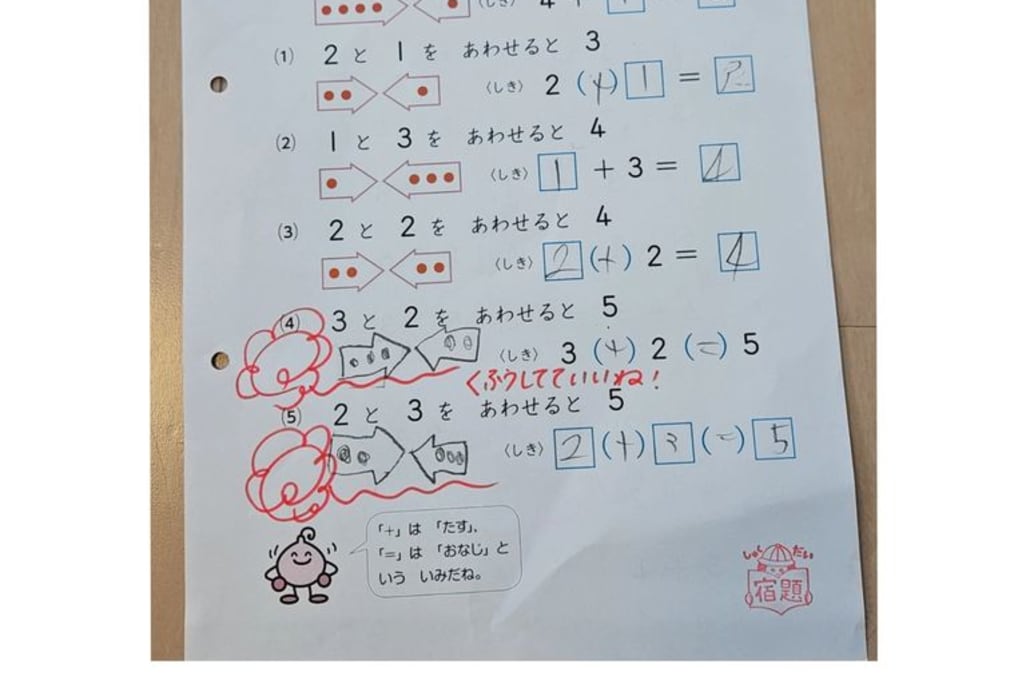 (1) 2 と 1 を あわせると 3
〈しき〉 2 (+) 1 = 3
(2) 1 と 3 を あわせると 4
〈しき〉 1 + 3 = 4
(3) 2 と 2 を あわせると 4
〈しき〉 2 (+) 2 = 4
(4) 3 と 2 を あわせると 5
〈しき〉 3 (+) 2 (=) 5
くふうしてていいね!
(5) 2 と 3 を あわせると 5
〈しき〉 2 (+) 3 (=) 5
「+」は 「たす」、
「=」は 「おなじ」と
いう いみだね。
しゅくだい
宿題